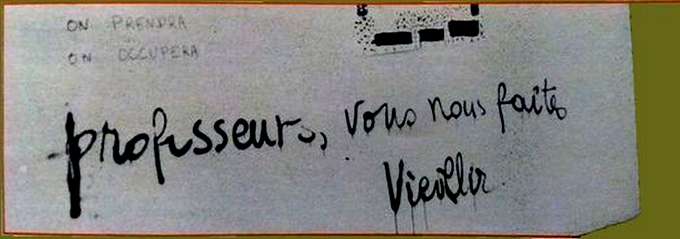 ON PRENDRA
ON OCCUPERA
professeurs, vous nous faites
Vieillir